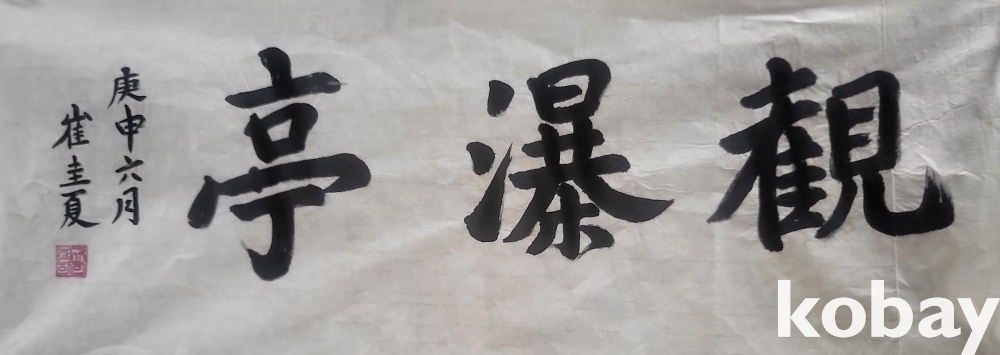 觀瀑亭
庚申六月
崔圭夏
kobay